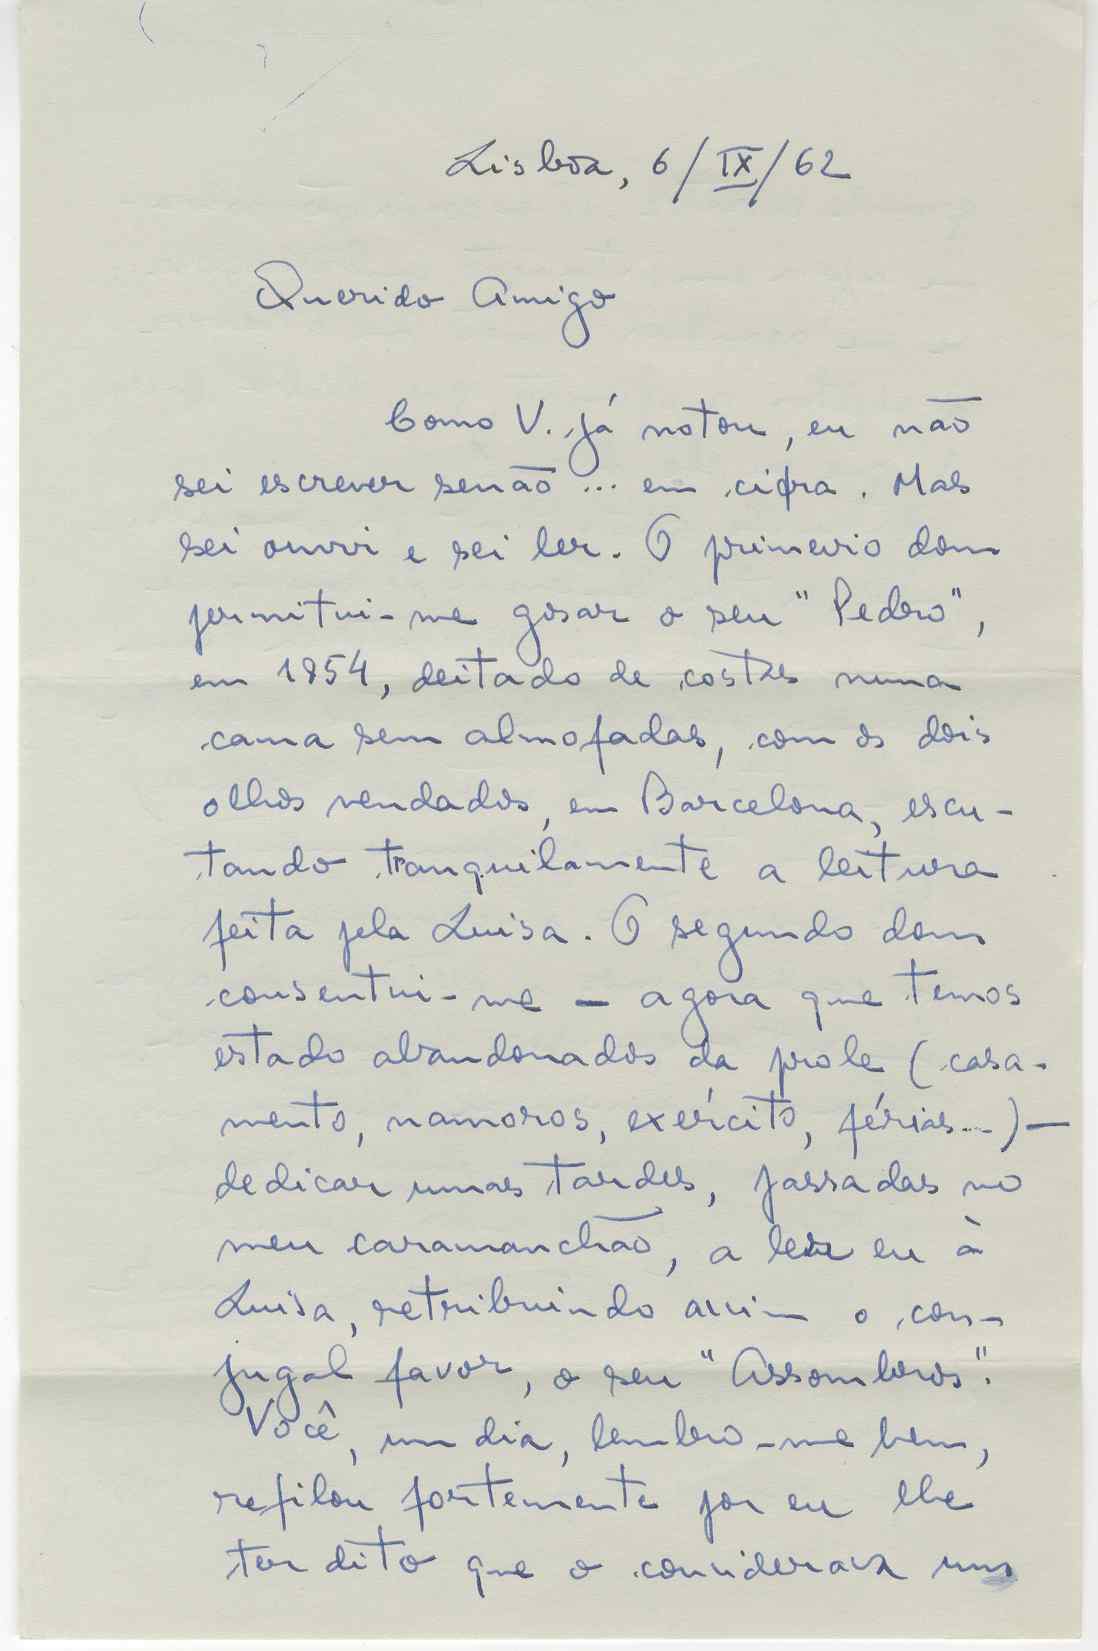 Lisboa, 6/IX/62
Querido Amigo
Como V. já notou, eu não
sei escrever senão... em cifra. Mas
sei ouvir e sei ler. O primeiro dom
permitiu-me gosar o seu "Pedro",
em 1954, deitado de costas numa
cama sem almofadas, com os dois
olhos vendados, em Barcelona, escu-
tando tranquilamente a leitura
feita pela Luisa. O segundo dom
consentiu-me — agora que temos
estado abandonados da prole (casa-
mento, namoros, exército, férias...) —
dedicar umas tardes, passadas no
meu caramanchão, a ler eu à
Luisa, retribuindo assim o con-
jugal favor, o seu "Assombros".
Você, um dia, lembro-me bem,
refilou fortemente por eu lhe
ter dito que o considerava um